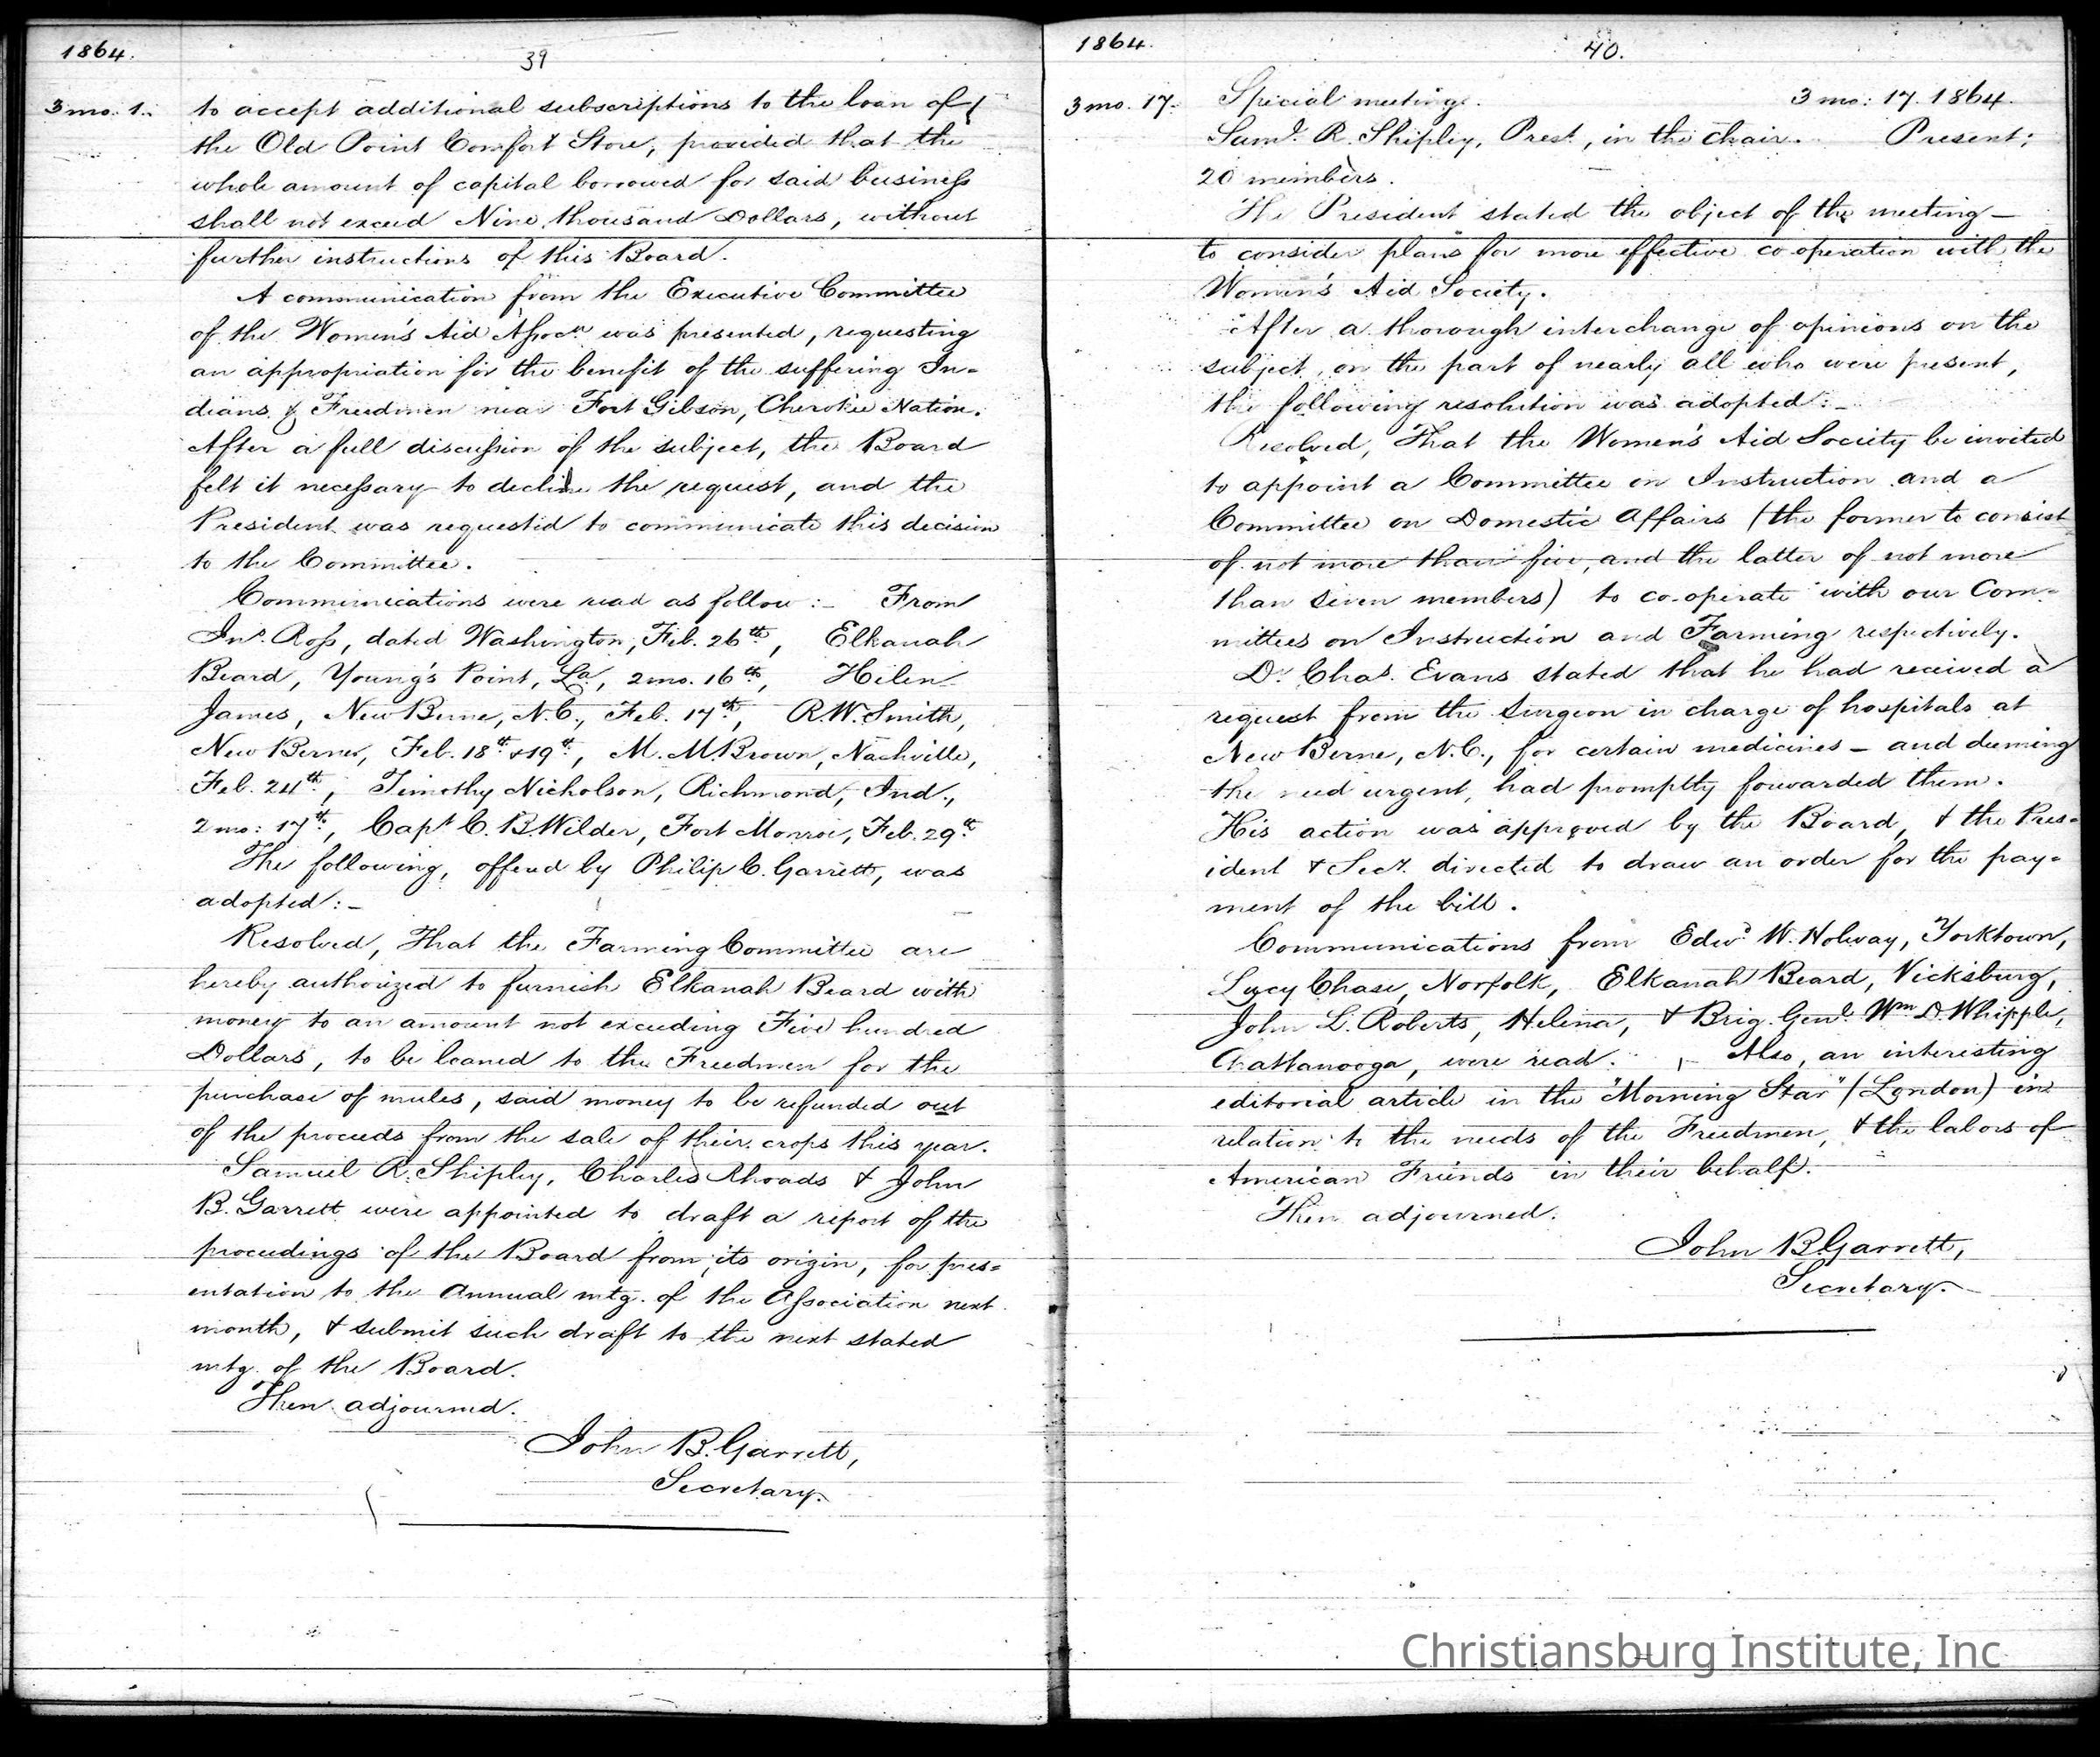 1864.
39
3 mo. 1.
to accept additional subscriptions to the loan of
the Old Point Comfort Store, provided that the
whole amount of capital borrowed for said business
shall not exceed Nine thousand Dollars, without
further instructions of this Board.
A communication from the Executive Committee
of the Women's Aid Assocn. was presented, requesting
an appropriation for the benefit of the suffering In=
dians & Freedmen near Fort Gibson, Cherokee Nation.
After a full discussion of the subject, the Board
felt it necessary to decline the request, and the
President was requested to communicate this decision
to the Committee.
Communications were read as follow:- From
Jno. Ross, dated Washington, Feb. 26th, Elkanah
Beard, Young's Point, La., 2 mo. 16th, Helen
James, New Berne, N.C., Feb. 17th, R.W. Smith,
New Berne, Feb. 18th & 19th, M. M. Brown, Nashville,
Feb. 24th, Timothy Nicholson, Richmond, Ind.,
2 mo: 17th, Capt C. B. Wilder, Fort Monroe, Feb. 29th
The following, offered by Philip C. Garrett, was
adopted:-
Resolved, That the Farming Committee are
hereby authorized to furnish Elkanah Beard with
money to an amount not exceeding Five hundred
Dollars, to be loaned to the Freedmen for the
purchase of mules, said money to be refunded out
of the proceeds from the sale of their crops this year.
Samuel R. Shipley, Charles Rhoads & John
B. Garrett were appointed to draft a report of the
proceedings of the Board from its origin, for pres=
entation to the Annual mtg. of the Association next
month, & submit such draft to the next stated
mtg. of the Board.
Then adjourned.
John B. Garrett,
Secretary.
1864.
40.
3 mo. 17.
Special meeting. 3 mo: 17. 1864.
Saml. R. Shipley, Prest., in the chair. Present;
20 members.
The President stated the object of the meeting —
to consider plans for more effective co-operation with the
Women's Aid Society.
After a thorough interchange of opinions on the
subject, on the part of nearly all who were present,
the following resolution was adopted:-
Resolved, That the Women's Aid Society be invited
to appoint a Committee on Instruction and a
Committee on Domestic Affairs (the former to consist
of not more than five, and the latter of not more
than seven members) to co-operate with our Com=
mittees on Instruction and Farming respectively.
Dr. Chas. Evans stated that he had received a
request from the Surgeon in charge of hospitals at
New Berne, N.C., for certain medicines — and deeming
the need urgent, had promptly forwarded them.
His action was approved by the Board, & the Pres=
ident & Secy. directed to draw an order for the pay=
ment of the bill.
Communications from Edwd. W. Holway, Yorktown,
Lucy Chase, Norfolk, Elkanah Beard, Vicksburg,
John L. Roberts, Helena, & Brig. Genl. Wm. D. Whipple,
Chattanooga, were read. Also, an interesting
editorial article in the "Morning Star" (London) in
relation to the needs of the Freedmen, & the labors of
American Friends in their behalf.
Then adjourned.
John B. Garrett,
Secretary.
Christiansburg Institute, Inc